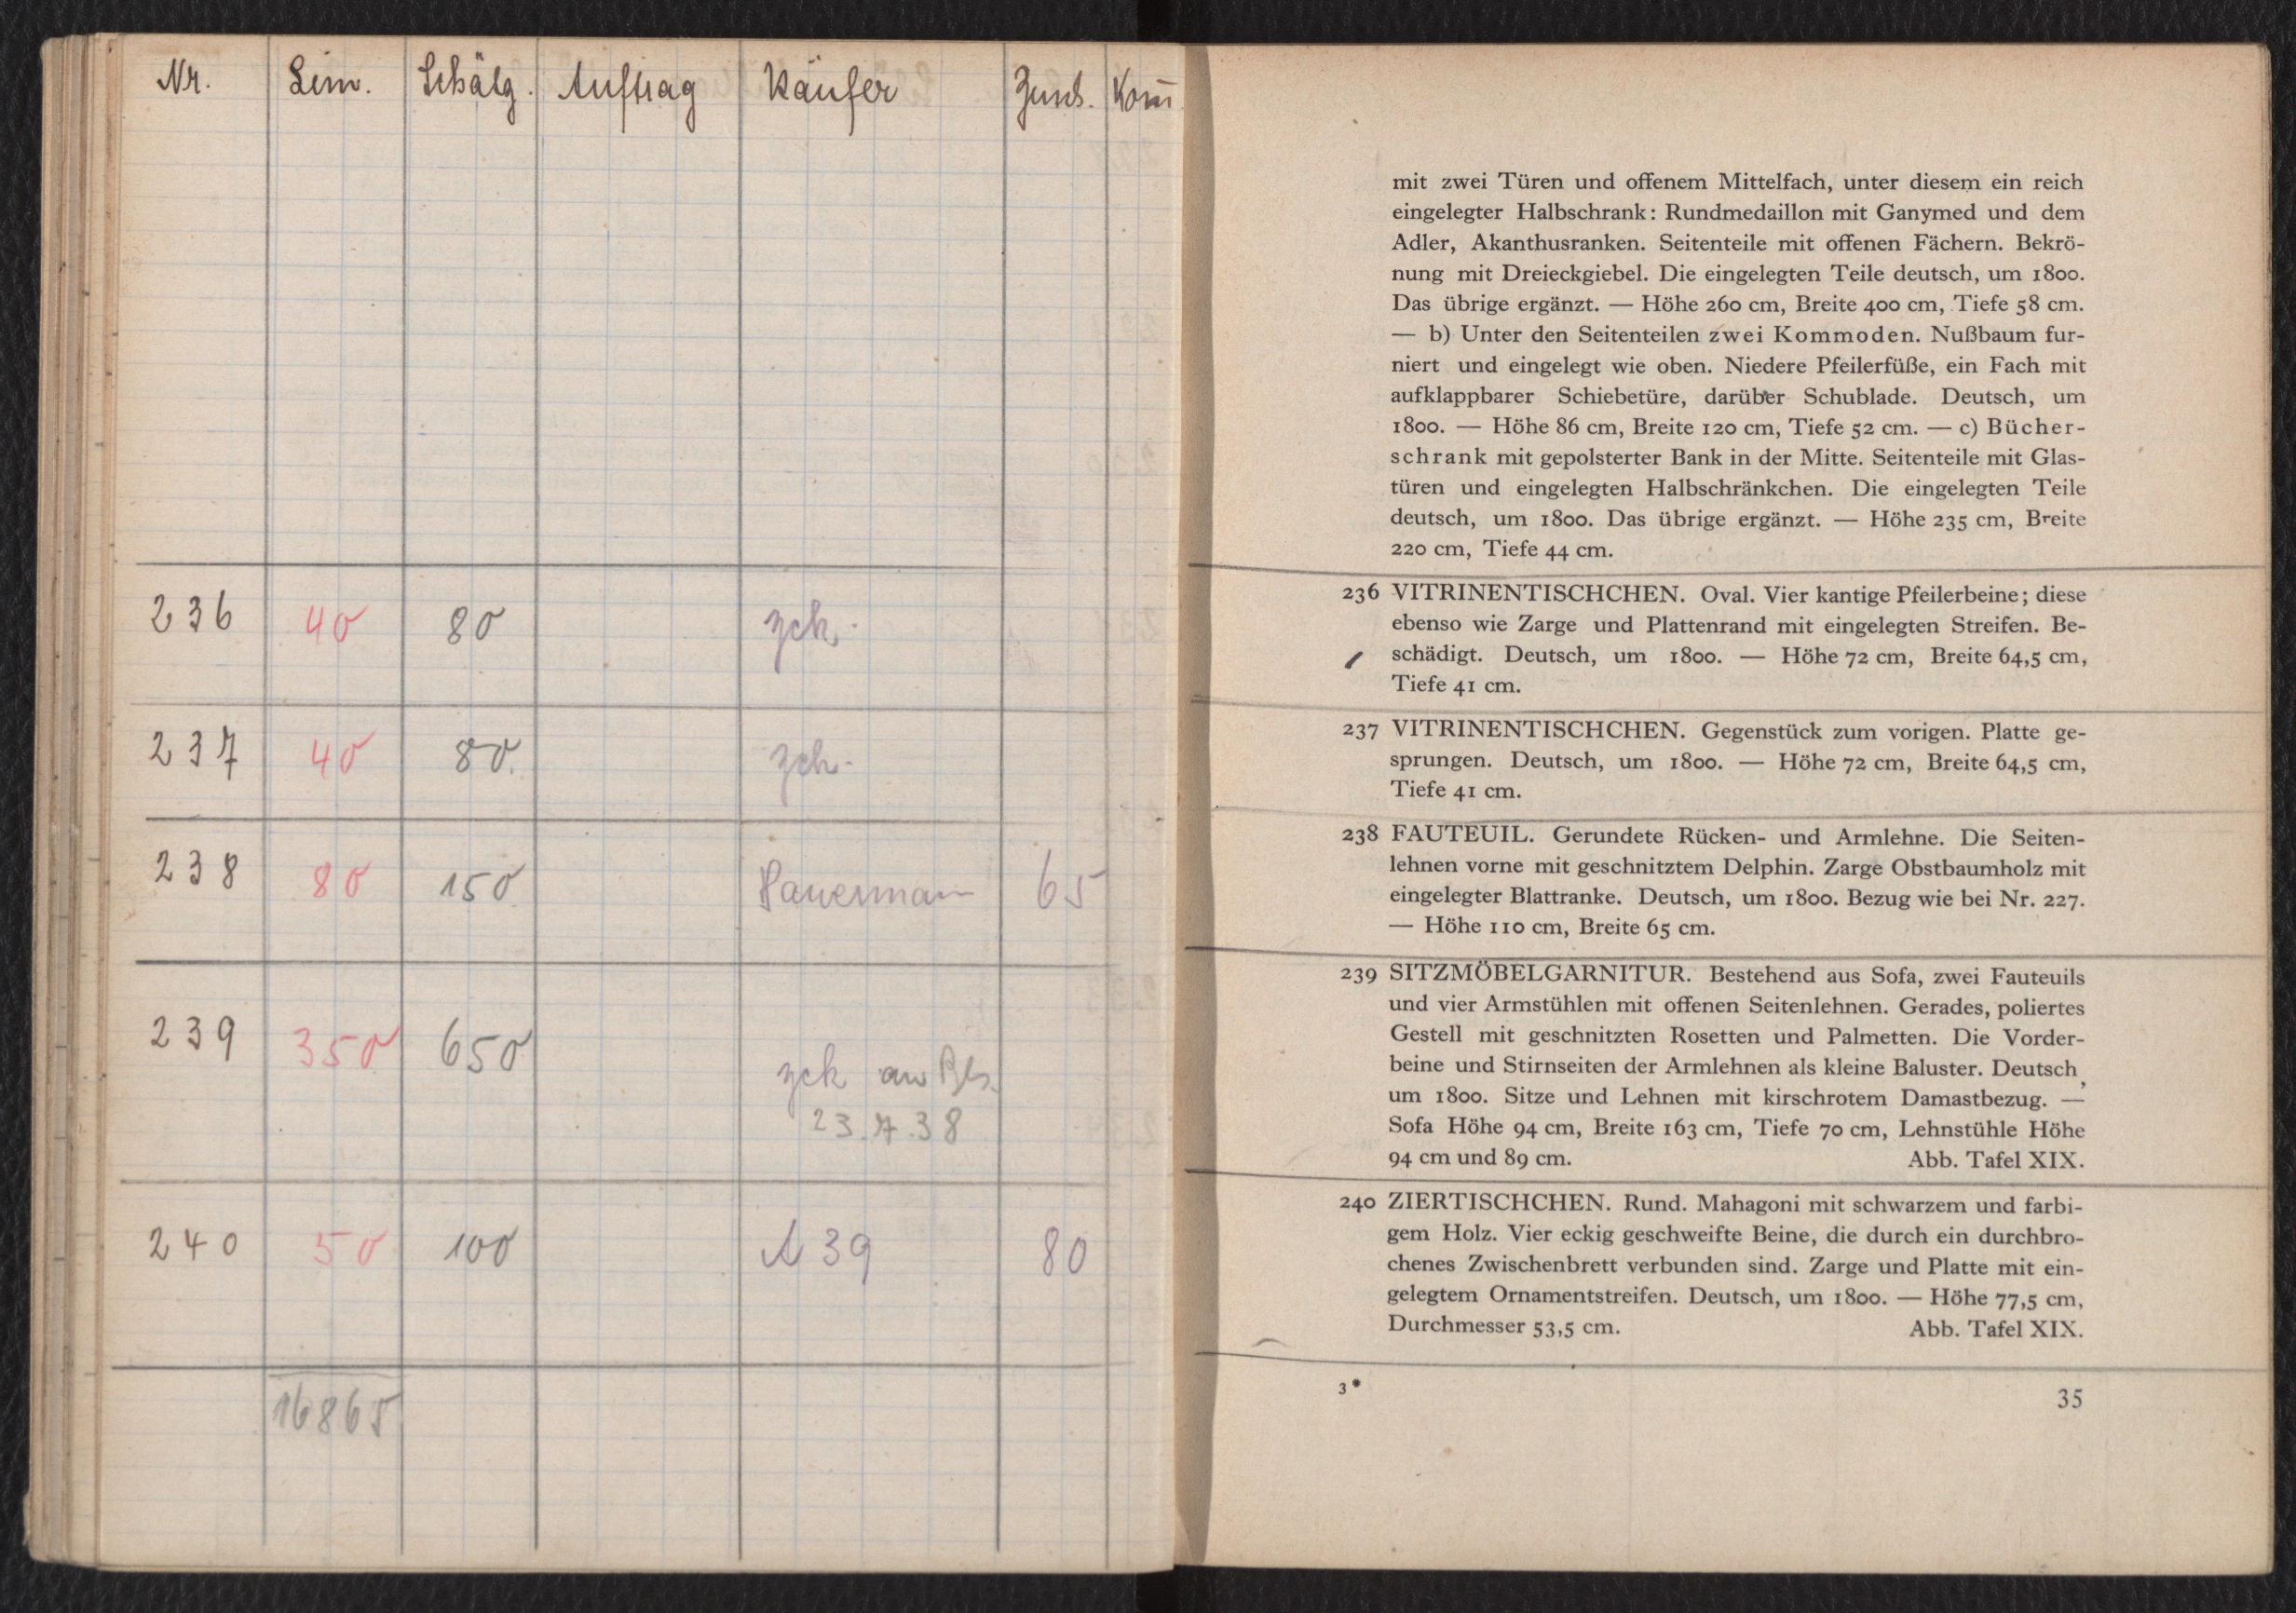 Nr. Lim. Schätzg. Auftrag Käufer Zusch. Kom
236 40 80 zck.
237 40 80. zck.
238 80 150 65
239 350 650
zck an
23.7.38
240 50 100 A 39 80
16865
mit zwei Türen und offenem Mittelfach, unter diesem ein reich
eingelegter Halbschrank: Rundmedaillon mit Ganymed und dem
Adler, Akanthusranken. Seitenteile mit offenen Fächern. Bekrö-
nung mit Dreieckgiebel. Die eingelegten Teile deutsch, um 1800.
Das übrige ergänzt. — Höhe 260 cm, Breite 400 cm, Tiefe 58 cm.
— b) Unter den Seitenteilen zwei Kommoden. Nußbaum fur-
niert und eingelegt wie oben. Niedere Pfeilerfüße, ein Fach mit
aufklappbarer Schiebetüre, darüber Schublade. Deutsch, um
1800. — Höhe 86 cm, Breite 120 cm, Tiefe 52 cm. — c) Bücher-
schrank mit gepolsterter Bank in der Mitte. Seitenteile mit Glas-
türen und eingelegten Halbschränkchen. Die eingelegten Teile
deutsch, um 1800. Das übrige ergänzt. — Höhe 235 cm, Breite
220 cm, Tiefe 44 cm.
236 VITRINENTISCHCHEN. Oval. Vier kantige Pfeilerbeine; diese
ebenso wie Zarge und Plattenrand mit eingelegten Streifen. Be-
schädigt. Deutsch, um 1800. — Höhe 72 cm, Breite 64,5 cm,
Tiefe 41 cm.
237 VITRINENTISCHCHEN. Gegenstück zum vorigen. Platte ge-
sprungen. Deutsch, um 1800. — Höhe 72 cm, Breite 64,5 cm,
Tiefe 41 cm.
238 FAUTEUIL. Gerundete Rücken- und Armlehne. Die Seiten-
lehnen vorne mit geschnitztem Delphin. Zarge Obstbaumholz mit
eingelegter Blattranke. Deutsch, um 1800. Bezug wie bei Nr. 227.
— Höhe 110 cm, Breite 65 cm.
239 SITZMÖBELGARNITUR. Bestehend aus Sofa, zwei Fauteuils
und vier Armstühlen mit offenen Seitenlehnen. Gerades, poliertes
Gestell mit geschnitzten Rosetten und Palmetten. Die Vorder-
beine und Stirnseiten der Armlehnen als kleine Baluster. Deutsch,
um 1800. Sitze und Lehnen mit kirschrotem Damastbezug. —
Sofa Höhe 94 cm, Breite 163 cm, Tiefe 70 cm, Lehnstühle Höhe
94 cm und 89 cm. Abb. Tafel XIX.
240 ZIERTISCHCHEN. Rund. Mahagoni mit schwarzem und farbi-
gem Holz. Vier eckig geschweifte Beine, die durch ein durchbro-
chenes Zwischenbrett verbunden sind. Zarge und Platte mit ein-
gelegtem Ornamentstreifen. Deutsch, um 1800. — Höhe 77,5 cm,
Durchmesser 53,5 cm. Abb. Tafel XIX.
3*
35